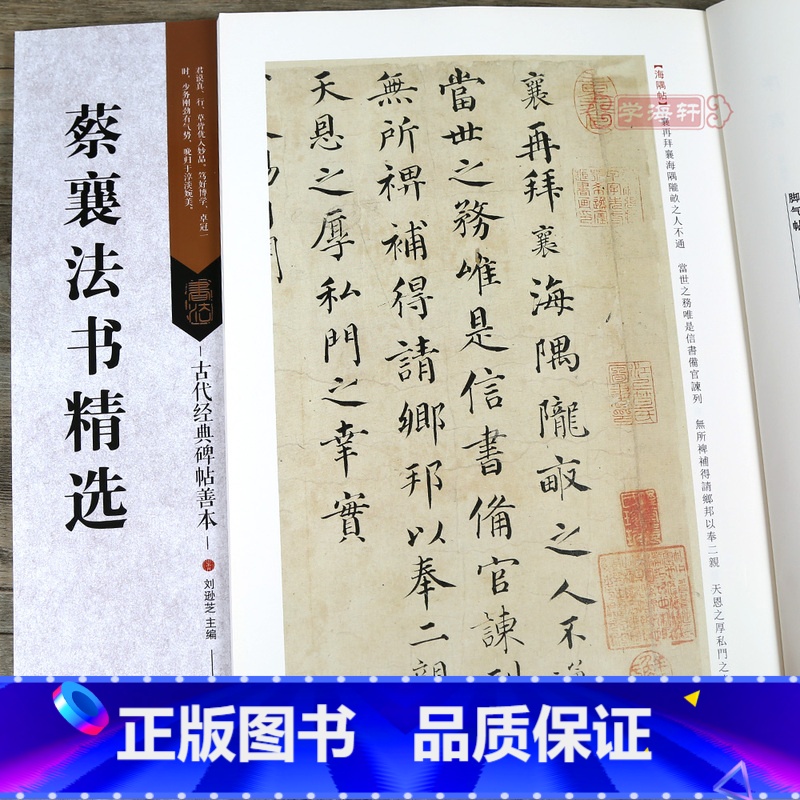 蔡襄法书精选
君谟真、行、草皆优入妙品，笃好博学，卓冠一
时，少务刚劲有气势，晚归于淳淡婉美。
書法
古代经典碑帖善本
刘逊芝 主编
学海轩
【海隅帖】襄再拜襄海隅隴畝之人不通 當世之務唯是信書備官諫列 無所裨補得請鄉邦以奉二親 天恩之厚私門之
襄再拜襄海隅隴畝之人不通
當世之務唯是信書備官諫列
無所裨補得請鄉邦以奉二親
天恩之厚私門之幸實
脚气帖
正版物流 品质保证